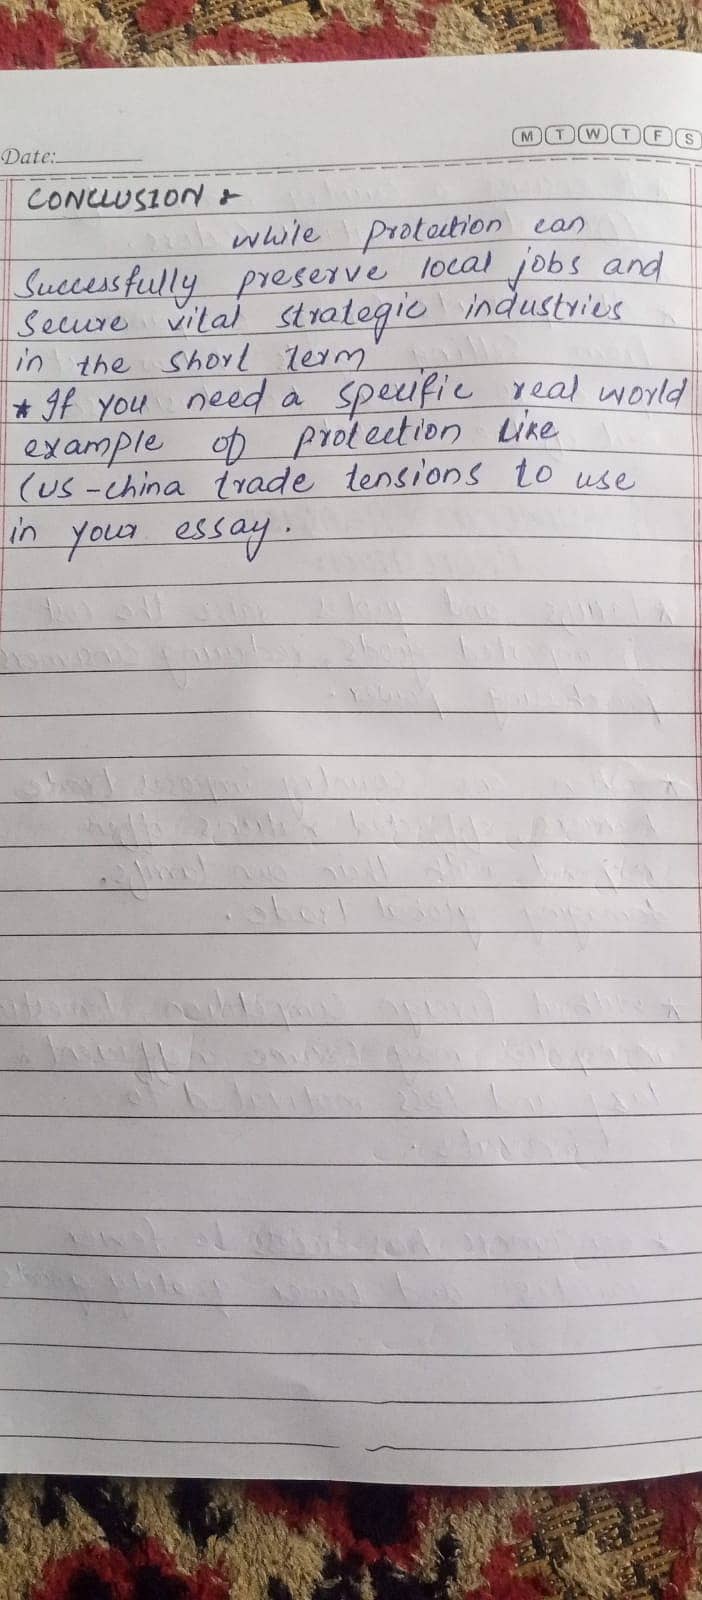 M T W T F S
Date:
CONCLUSION
while protection can
Successfully preserve local jobs and
Secure vital strategic industries
in the short term
* If you need a specific real world
example of protection like
(US-china trade tensions to use
in your essay.